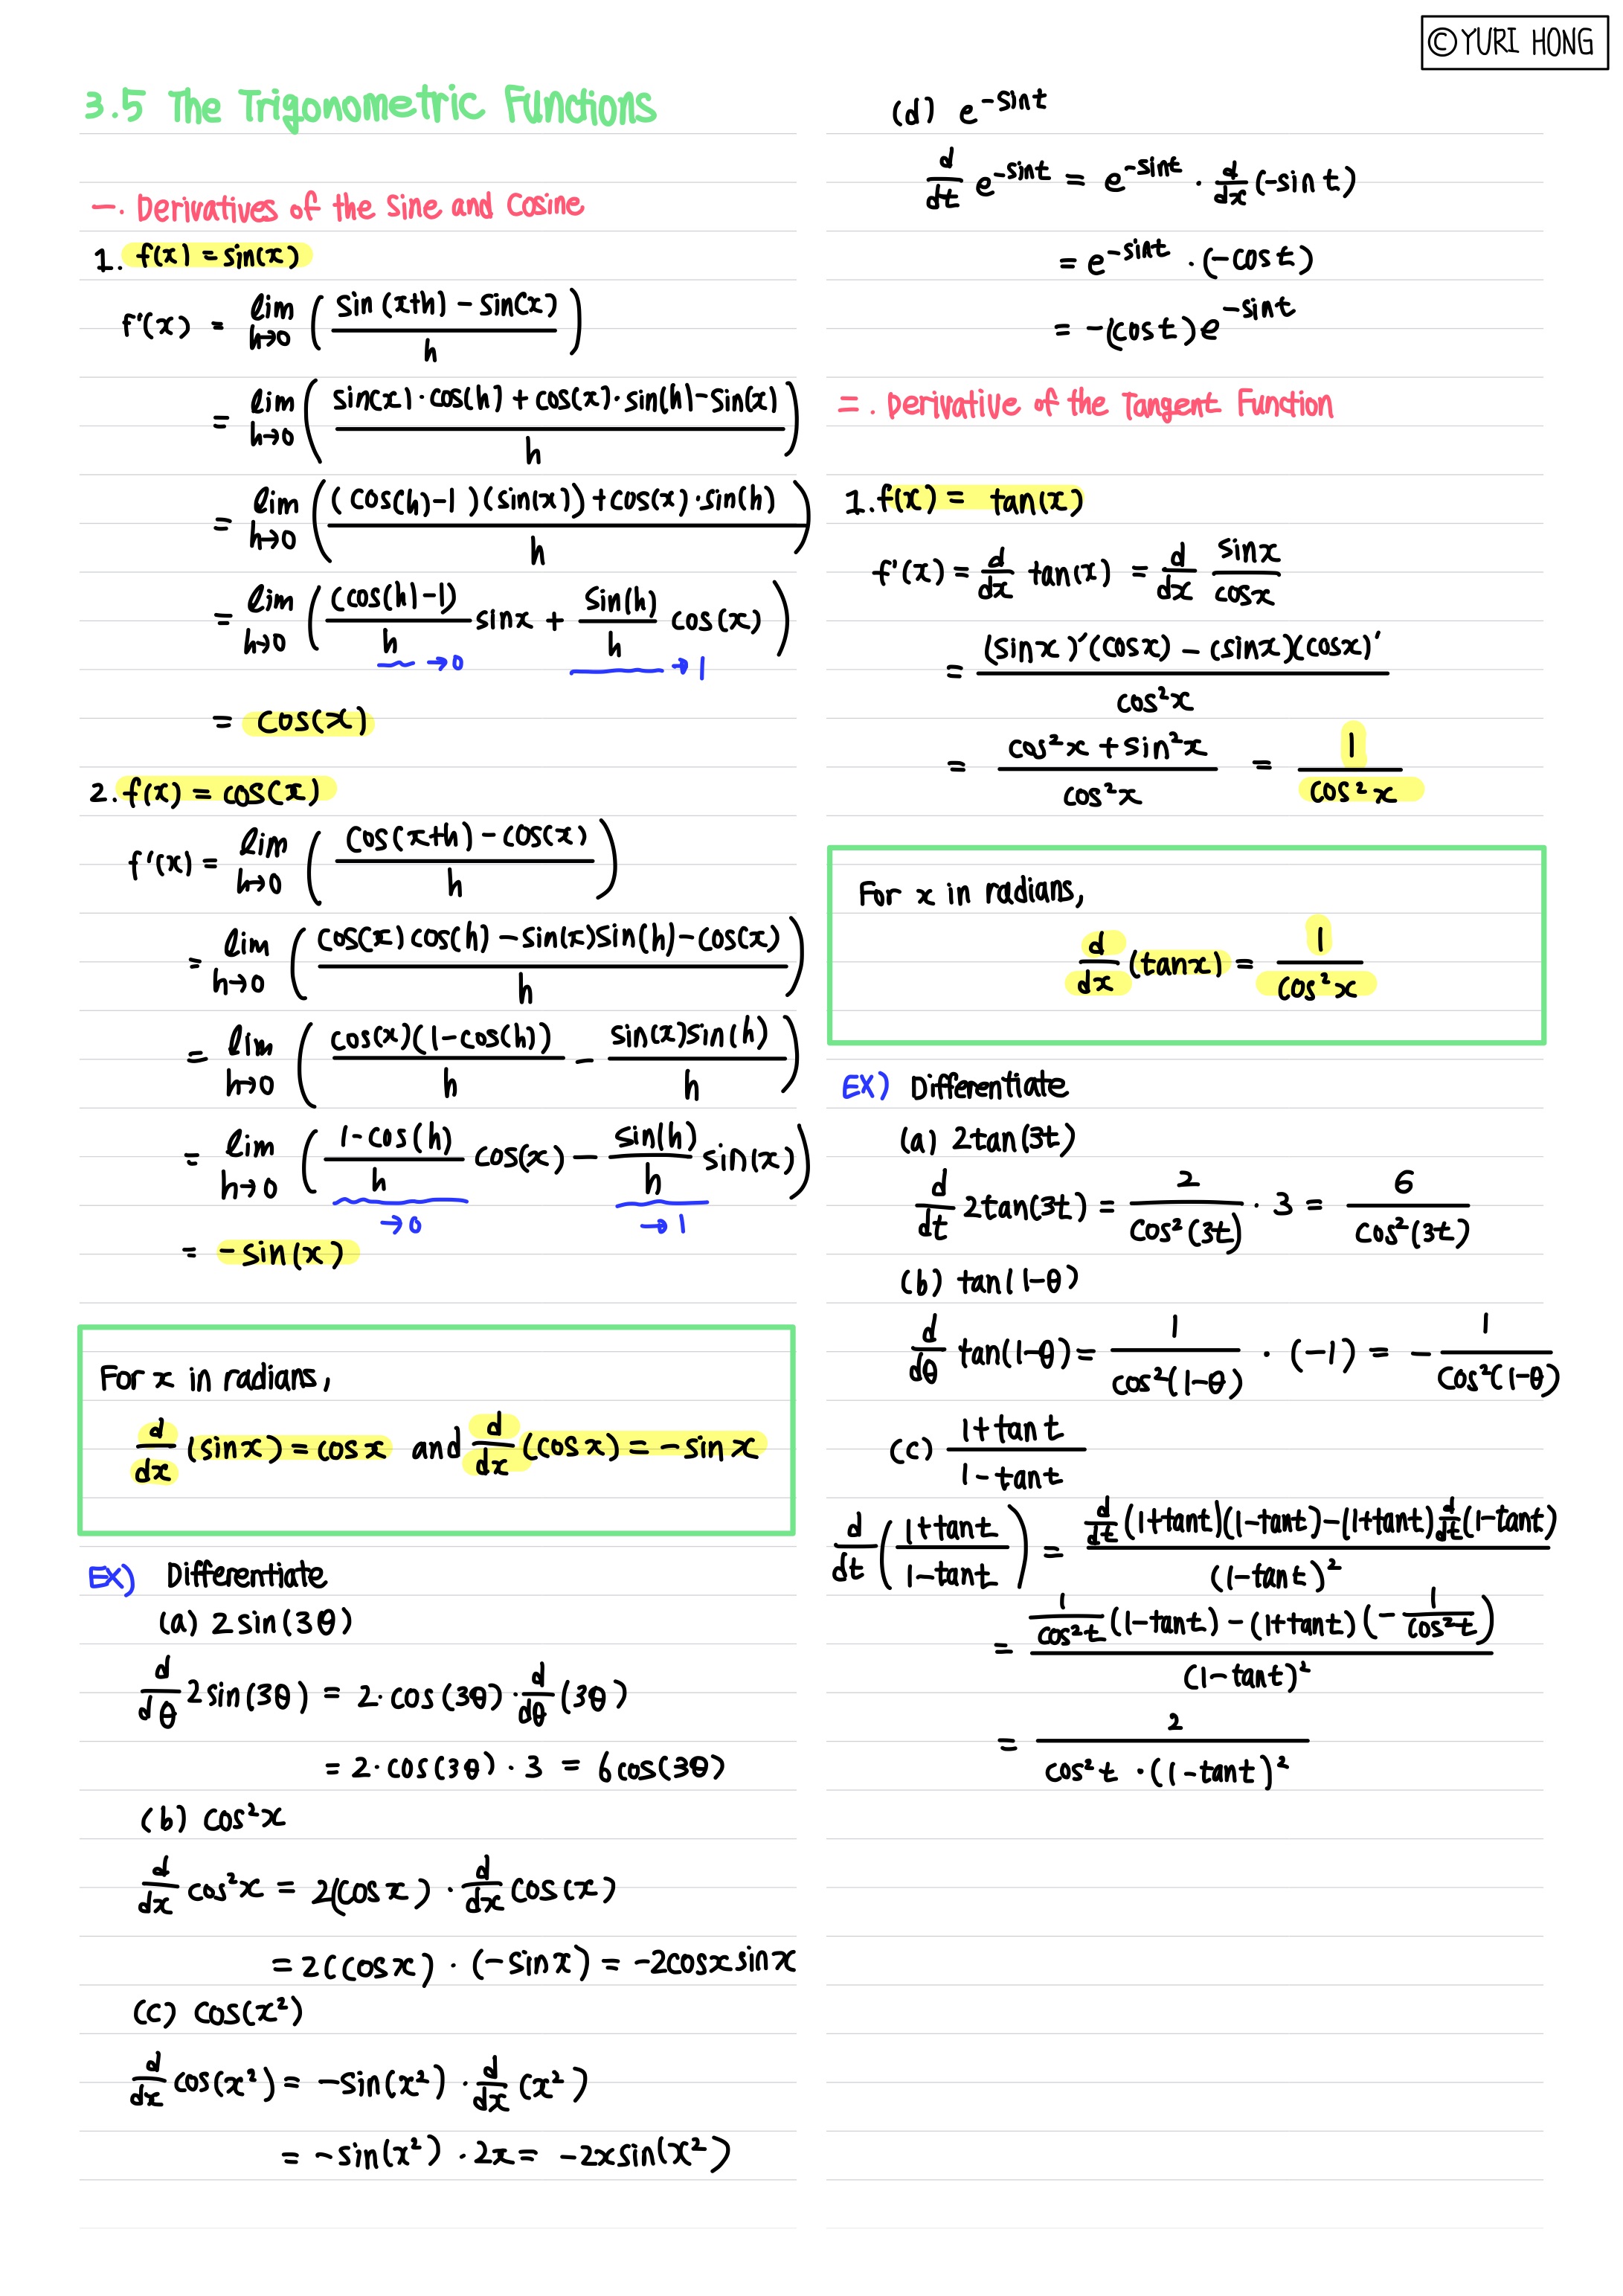 © YURI HONG
3.5 The Trigonometric Functions
一. Derivatives of the Sine and Cosine
1. f(x) = sin(x)
f'(x) = lim h→0 ( (sin(x+h) - sin(x)) / h )
= lim h→0 ( (sin(x)·cos(h) + cos(x)·sin(h) - sin(x)) / h )
= lim h→0 ( ((cos(h)-1)(sin(x)) + cos(x)·sin(h)) / h )
= lim h→0 ( (cos(h)-1)/h sinx + sin(h)/h cos(x) )
→0 →1
= cos(x)
2. f(x) = cos(x)
f'(x) = lim h→0 ( (cos(x+h) - cos(x)) / h )
= lim h→0 ( (cos(x)cos(h) - sin(x)sin(h) - cos(x)) / h )
= lim h→0 ( cos(x)(1-cos(h))/h - sin(x)sin(h)/h )
= lim h→0 ( (1-cos(h))/h cos(x) - sin(h)/h sin(x) )
→0 →1
= -sin(x)
For x in radians,
d/dx (sinx) = cosx and d/dx (cosx) = -sinx
EX) Differentiate
(a) 2sin(3θ)
d/dθ 2sin(3θ) = 2·cos(3θ)·d/dθ(3θ)
= 2·cos(3θ)·3 = 6cos(3θ)
(b) cos²x
d/dx cos²x = 2(cosx)·d/dx cos(x)
= 2(cosx)·(-sinx) = -2cosxsinx
(c) cos(x²)
d/dx cos(x²) = -sin(x²)·d/dx(x²)
= -sin(x²)·2x = -2xsin(x²)
(d) e^(-sint)
d/dt e^(-sint) = e^(-sint)·d/dx(-sint)
= e^(-sint)·(-cost)
= -(cost)e^(-sint)
二. Derivative of the Tangent Function
1. f(x) = tan(x)
f'(x) = d/dx tan(x) = d/dx sinx/cosx
= ((sinx)'(cosx) - (sinx)(cosx)') / cos²x
= (cos²x + sin²x) / cos²x = 1/cos²x
For x in radians,
d/dx (tanx) = 1/cos²x
EX) Differentiate
(a) 2tan(3t)
d/dt 2tan(3t) = 2/cos²(3t) · 3 = 6/cos²(3t)
(b) tan(1-θ)
d/dθ tan(1-θ) = 1/cos²(1-θ) · (-1) = - 1/cos²(1-θ)
(c) (1+tant)/(1-tant)
d/dt ( (1+tant)/(1-tant) ) = ( d/dt(1+tant)(1-tant) - (1+tant) d/dt(1-tant) ) / (1-tant)²
= ( 1/cos²t (1-tant) - (1+tant)(- 1/cos²t) ) / (1-tant)²
= 2 / (cos²t·(1-tant)²)